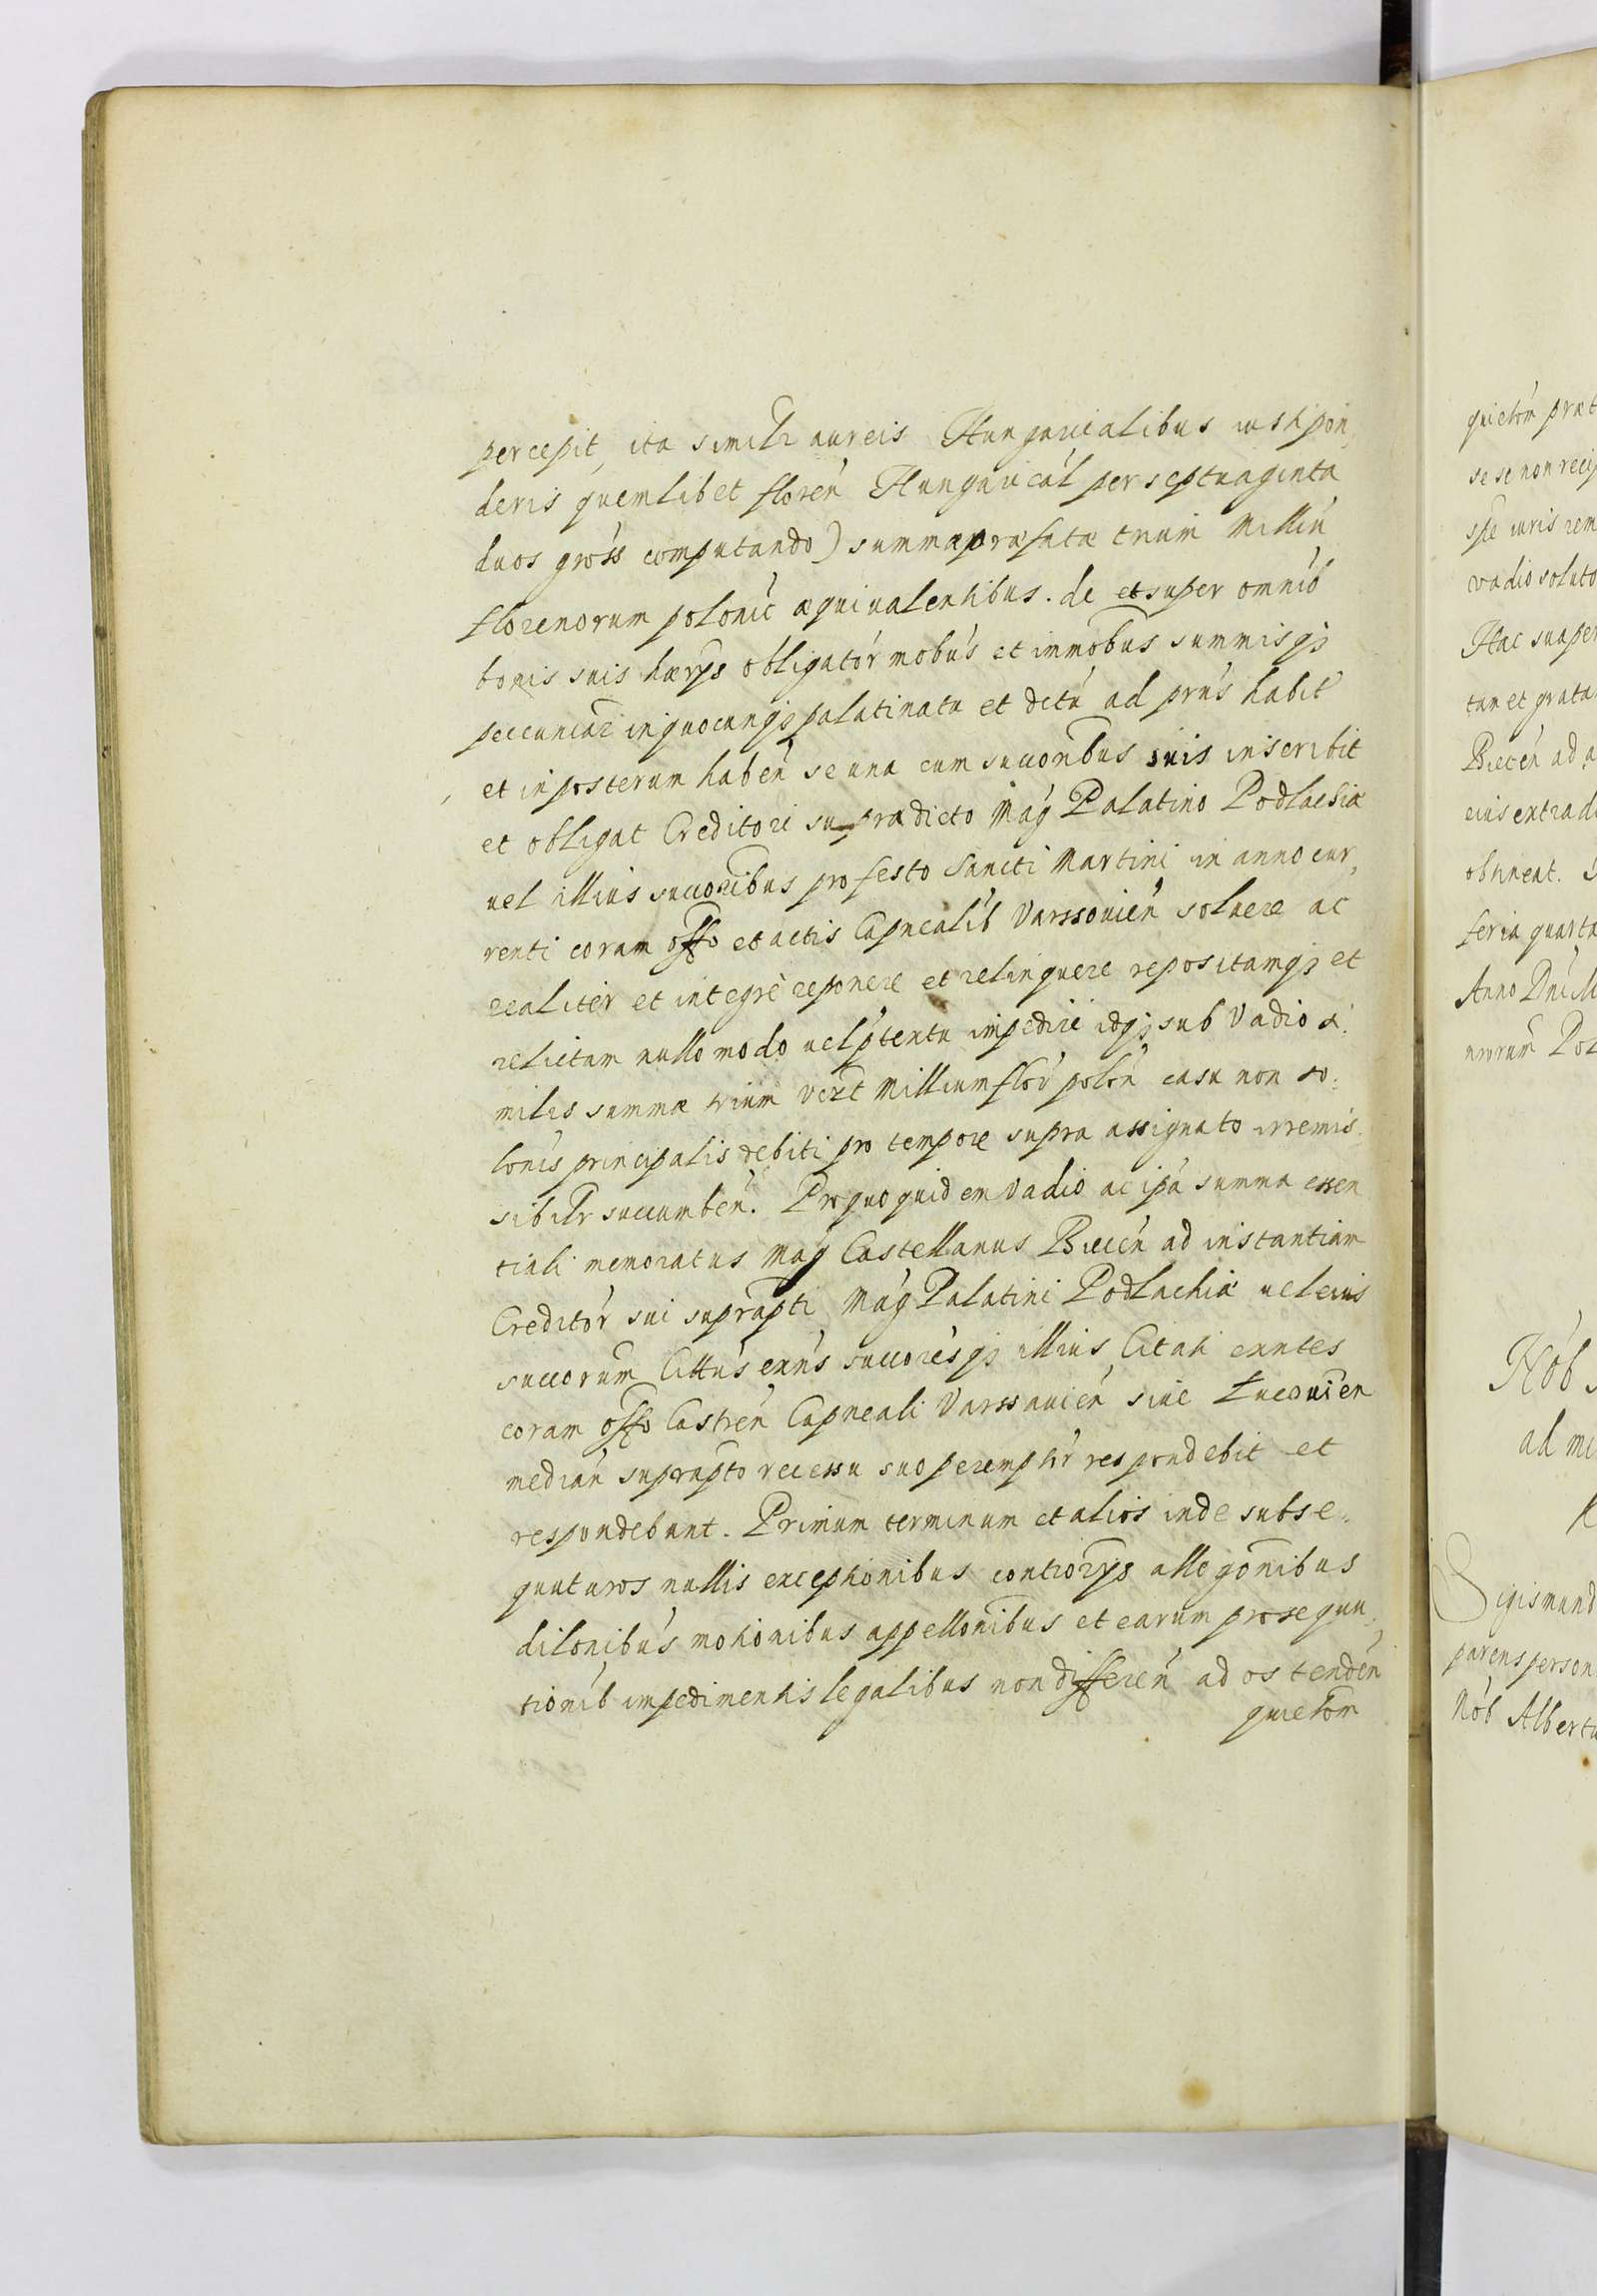 percepit, ita simili aureis Hungaricalibus iusti pon,
deris quemlibet floren Hungarical per septuaginta
duos gross computando) summæ præfatæ trium Milliu
florenorum polonic æquivalentibus. de et super omnib
bonis suis hærys obligator mobus et immobus summisq3
peccuniar in quocunq3 palatinatu et dctu ad prns habit
et in posterum haben se una cum succoribus suis inscribit
et obligat Creditori supradicto Mag Palatino Podlachiæ
uel illius succoribus pro festo Sancti Martini in anno cur,
renti coram offo et actis Capnealib Varssouien soluere ac
realiter et integrè reponere et relinquere repositamq3 et
relictam nullo modo uel ptentu impedire idq3 sub Vadio si:
milis summæ trium vert Millium flor polon casu non so:
lonis principalis debiti pro tempore supra assignato irremis.
sibilr succumben. Pro quo quidem Vadio ac ipa summa essen
tiali memoratus Mag Castellanus Biecen ad instantiam
Creditor sui suprapti Mag Palatini Podlachiæ uel eius
succorum Cittus exns succoresq3 illius Citati exntes
coram offo Castren Capneali Varssauien siue Lucouien
median suprapto recessu suo peremptor respondebit et
respondebunt. Primum terminum et alios inde subse„
quuturos nullis exceptionibus controrys allegonibus
dilonibus motionibus appellonibus et earum prosequu,
tionib impedimentis legalibus non differen ad ostenden
quietom
quietom præt
se se non recip
spe iuris rem
vadio soluto
Hac sua per
tan et grata
Biecen ad a
eius extrad
obtineat.
feria quarta
Anno Dni M
Nob
ad m
Sigismund
parens person
Nob Albertu